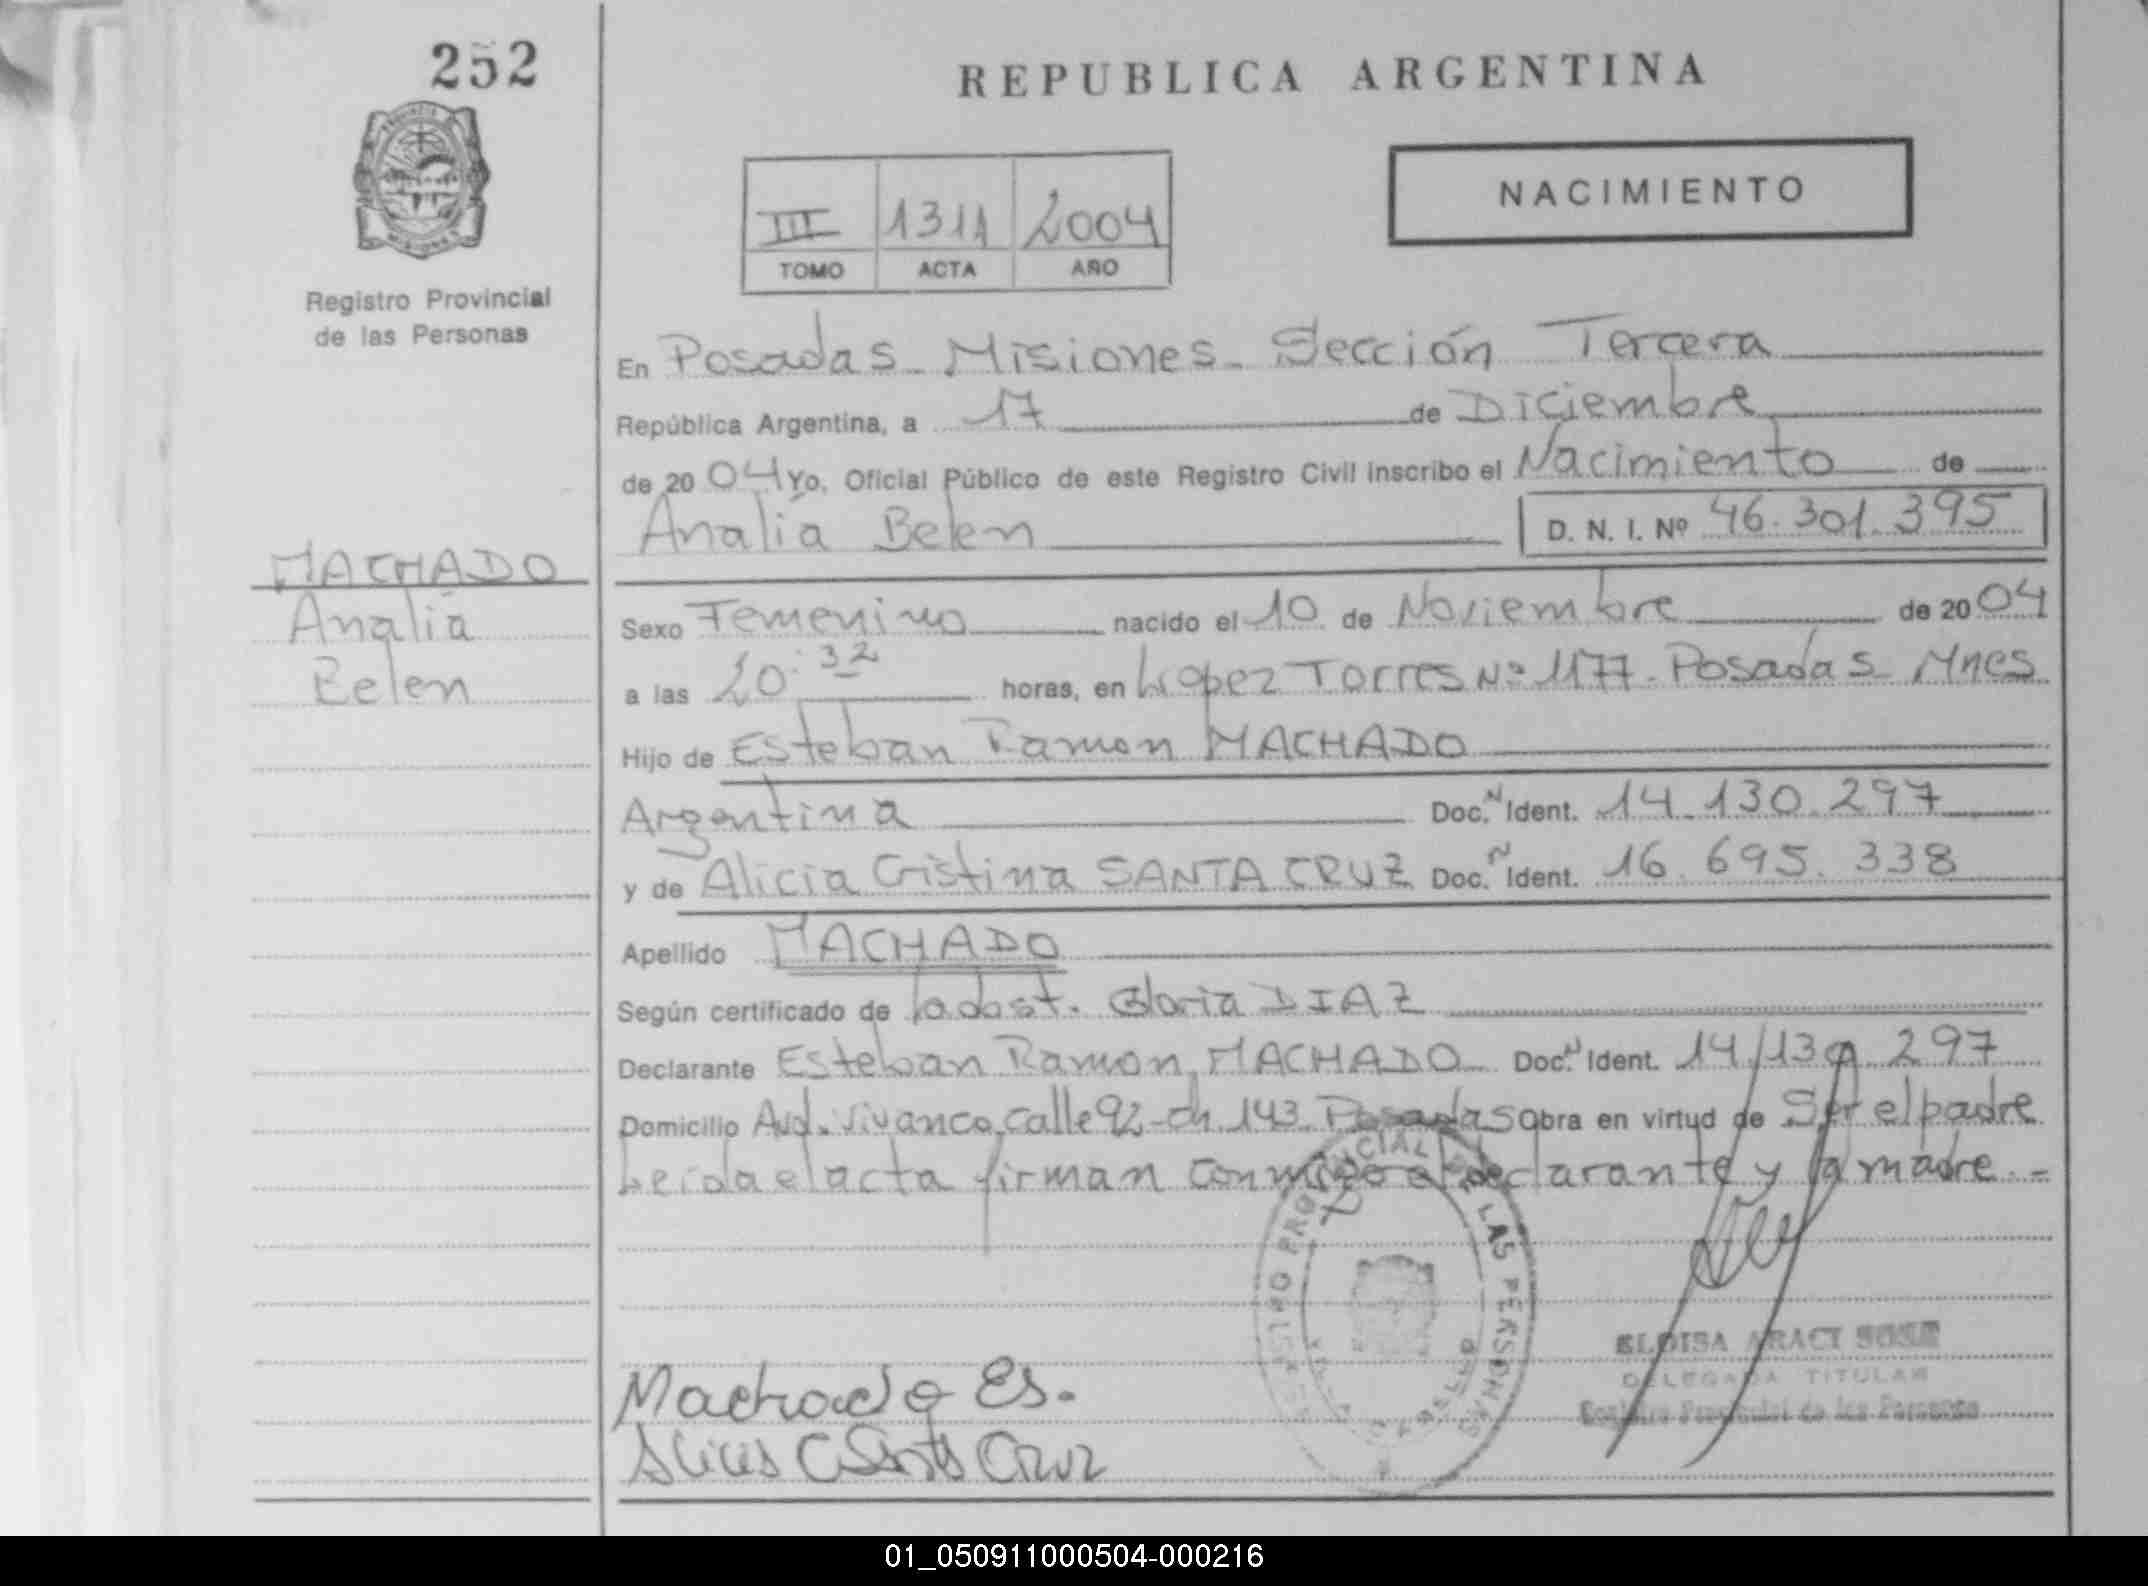 252
REPUBLICA ARGENTINA
NACIMIENTO
III 1311 2004
TOMO ACTA AÑO
Registro Provincial
de las Personas
En Posadas - Misiones - Sección Tercera
República Argentina, a 17 de Diciembre
de 2004 Yo, Oficial Público de este Registro Civil inscribo el Nacimiento de
Analía Belen D. N. I. Nº 46.301.395
MACHADO
Analía
Belen
Sexo Femenino nacido el 10 de Noviembre de 2004
a las 20:32 horas, en López Torres Nº 1177. Posadas Mnes
Hijo de Esteban Ramon MACHADO
Argentina Doc. N Ident. 14.130.297
y de Alicia Cristina SANTA CRUZ Doc. N Ident. 16.695.338
Apellido MACHADO
Según certificado de la obst. Gloria DIAZ
Declarante Esteban Ramon MACHADO Doc. N Ident. 14.130.297
Domicilio Avd. Vivanco, calle 92 - ch 143. Posadas obra en virtud de Ser el padre
Leída el acta firman conmigo el declarante y la madre. =
REGISTRO PROVINCIAL DE LAS PERSONAS
ELOISA ARACI SOSA
DELEGADA TITULAR
Registro Provincial de las Personas
Machado Es.
Alicia C Santa Cruz
01_050911000504-000216